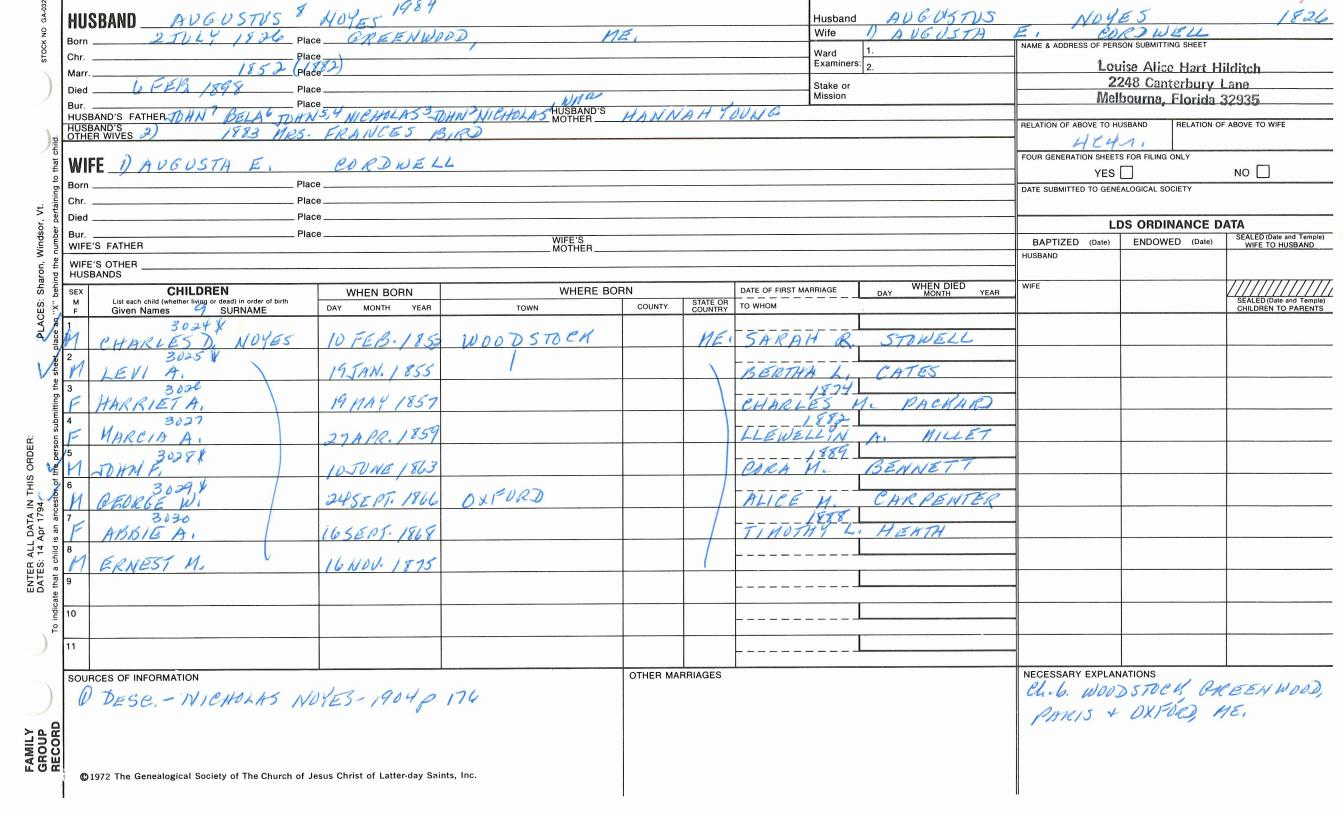 STOCK NO GA-032
HUSBAND AUGUSTUS 8 NOYES 1984
Born 2 JULY 1826 Place GREENWOOD, ME.
Chr. Place
Marr. 1852 (1882) Place
Died 6 FEB 1898 Place
Bur. Place
HUSBAND'S FATHER JOHN7 BELA6 JOHN5,4 NICHOLAS3 JOHN2 NICHOLAS1 HUSBAND'S MOTHER HANNAH YOUNG
HUSBAND'S OTHER WIVES 2) 1883 MRS. FRANCES BIRD
WIFE 1) AUGUSTA E. CORDWELL
Born Place
Chr. Place
Died Place
Bur. Place
WIFE'S FATHER WIFE'S MOTHER
WIFE'S OTHER HUSBANDS
Husband AUGUSTUS NOYES 1826
Wife 1) AUGUSTA E. CORDWELL
Ward Examiners: 1.
2.
Stake or Mission
NAME & ADDRESS OF PERSON SUBMITTING SHEET
Louise Alice Hart Hilditch
2248 Canterbury Lane
Melbourne, Florida 32935
RELATION OF ABOVE TO HUSBAND RELATION OF ABOVE TO WIFE
4C4r.
FOUR GENERATION SHEETS FOR FILING ONLY
YES NO
DATE SUBMITTED TO GENEALOGICAL SOCIETY
LDS ORDINANCE DATA
BAPTIZED (Date) ENDOWED (Date) SEALED (Date and Temple) WIFE TO HUSBAND
HUSBAND
WIFE
SEALED (Date and Temple) CHILDREN TO PARENTS
SEX M F CHILDREN WHEN BORN WHERE BORN DATE OF FIRST MARRIAGE WHEN DIED
List each child (whether living or dead) in order of birth DAY MONTH YEAR TOWN COUNTY STATE OR COUNTRY TO WHOM DAY MONTH YEAR
Given Names 9 SURNAME
1 3024 X
M CHARLES D. NOYES 10 FEB. 1853 WOODSTOCK ME. SARAH R. STOWELL
2 3025 X
M LEVI A. 19 JAN. 1855 BERTHA L. CATES
3 3026 1874
F HARRIET A. 19 MAY 1857 CHARLES M. PACKARD
4 3027 1882
F MARCIA A. 27 APR. 1859 LLEWELLIN A. MILLET
5 3028 X 1889
M JOHN F. 10 JUNE 1863 CORA M. BENNETT
6 3029 X
M GEORGE W. 24 SEPT. 1866 OXFORD ALICE M. CARPENTER
7 3030 1888
F ABBIE A. 16 SEPT. 1868 TIMOTHY L. HEATH
8
M ERNEST M. 16 NOV. 1875
9
10
11
SOURCES OF INFORMATION
① DESC. - NICHOLAS NOYES - 1904 p 176
OTHER MARRIAGES
NECESSARY EXPLANATIONS
Ch. b. WOODSTOCK, GREENWOOD,
PARIS + OXFORD, ME.
©1972 The Genealogical Society of The Church of Jesus Christ of Latter-day Saints, Inc.
FAMILY GROUP RECORD
ENTER ALL DATA IN THIS ORDER:
DATES: 14 Apr 1794 PLACES: Sharon, Windsor, Vt.
To indicate that a child is an ancestor of the person submitting the sheet, place an "X" behind the number pertaining to that child.